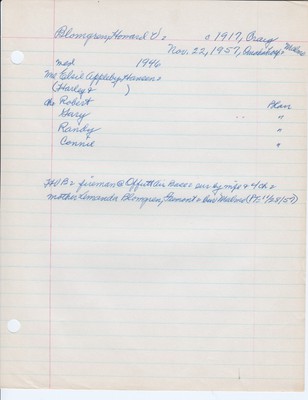 Blomgren, Howard V =
c 1917, Craig
Nov. 22, 1957, Melrose
med 1946
Mc Elsie Appleby Hansen =
(Harley & )
chs Robert Blan
Gary "
Randy "
Connie "
HVB = fireman @ Offutt Air Base = sur by wife & 4 ch =
mother Amanda Blomgren, = bur Melrose (PT 11/28/57)